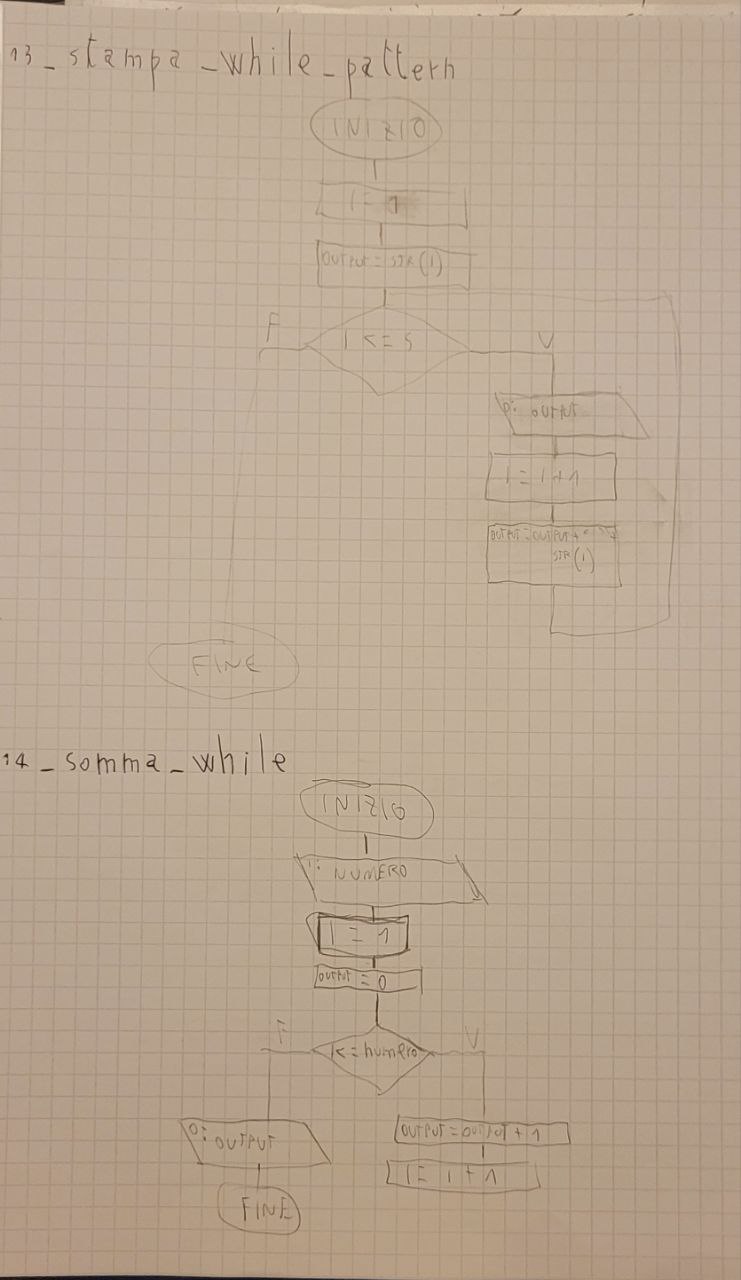 13_stampa_while_pattern
INIZIO
I = 1
OUTPUT = STR(I)
I <= 5
F
V
O: OUTPUT
I = I + 1
OUTPUT = OUTPUT + " " +
STR(I)
FINE
14_somma_while
INIZIO
I: NUMERO
I = 1
OUTPUT = 0
I<=numero
F
V
O: OUTPUT
OUTPUT = OUTPUT + 1
I = I + 1
FINE